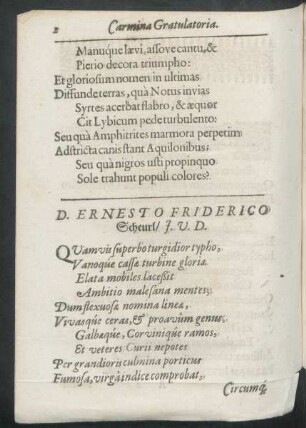 2 Carmina Gratulatoria.
Manuq́ue lævi, assove cantu, &
Pierio decora triumpho:
Et gloriosum nomen in ultimas
Diffunde terras, quà Notus invias
Syrtes acerbat flabro, & æquor
Cit Lybicum pede turbulento:
Seu quà Amphitrites marmora perpetim
Adstricta canis stant Aquilonibus;
Seu quà nigros usti propinquo
Sole trahunt populi colores?
D. ERNESTO FRIDERICO
Scheurl/ J. V. D.
QVamvis superbo turgidior typho,
Vanoq́ue cassæ turbine gloria
Elata mobiles lacessit
Ambitio malesana mentes;
Dum flexuosa nomina linea,
Vivasq́ue ceras, & proavûm genus,
Galbæq́ue, Corviniq́ue ramos,
Et veteres Curii nepotes
Per grandioris culmina porticus
Fumosa, virgâ indice comprobat,
Circumq́;